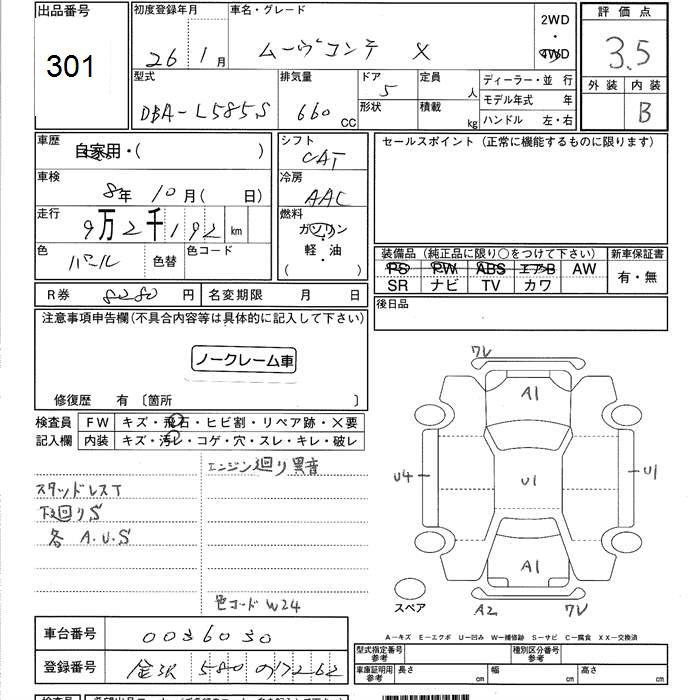 出品番号
301
初度登録年月
26年1月
車名・グレード
ムーヴコンテ X
2WD
・
4WD
評価点
3.5
外装 内装
B
型式
DBA-L585S
排気量
660 CC
ドア
5
形状
定員
人
積載
kg
ディーラー・並 行
モデル年式 年
ハンドル 左・右
車歴
自家用・( )
車検
8年 10月( 日)
走行
9万2千192 km
色
パール
色替
色コード
シフト
CAT
冷房
AAC
燃料
ガソリン
・
軽・油
( )
セールスポイント (正常に機能するものに限ります)
装備品 (純正品に限り○をつけて下さい)
新車保証書
PS PW ABS エアB AW
SR ナビ TV カワ
有・無
R券 8280 円
名変期限 月 日
後日品
注意事項申告欄(不具合内容等は具体的に記入して下さい)
ノークレーム車
修復歴 有 〔箇所 〕
検査員
記入欄
FW キズ・飛石・ヒビ割・リペア跡・×要
内装 キズ・汚レ・コゲ・穴・スレ・キレ・破レ
エンジン廻り異音
スタッドレスT
下廻りS
各 A.U.S
色コード W24
7V
A1
U4
U1
U1
A1
スペア
A2
7V
A-キズ E-エクボ U-凹み W-補修跡 S-サビ C-腐食 XX-交換済
車台番号
0036030
登録番号
金沢 580 の1262
型式指定番号
参考
種別区分番号
参考
車庫証明用
参考
長さ cm
幅 cm
高さ cm